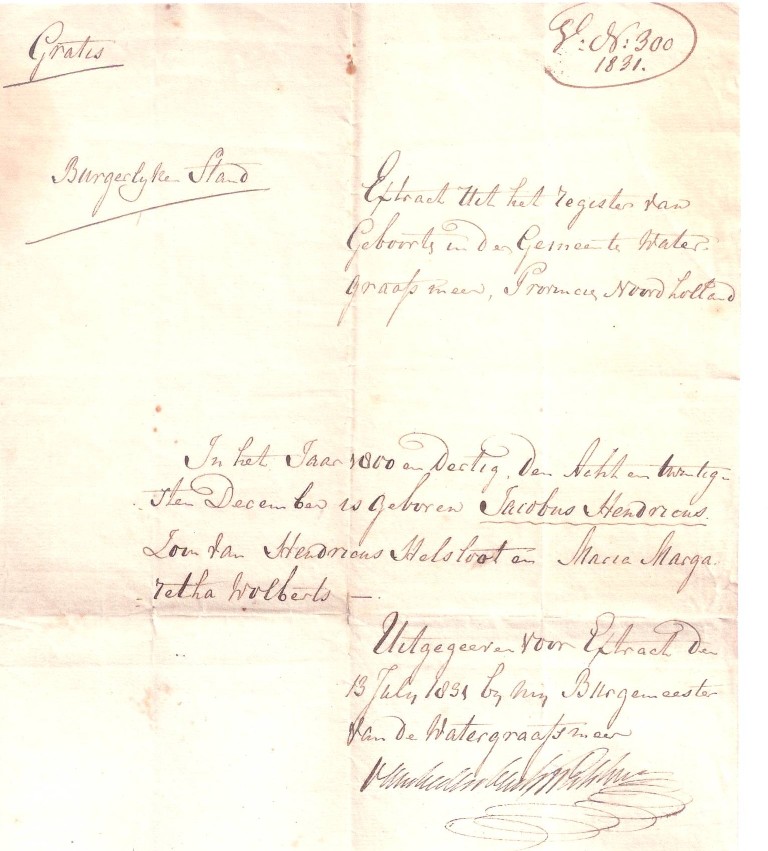 Gratis
V: N: 300
1831.
Burgerlyken Stand
Extract Uit het register van
Geboorte in de Gemeente Water-
graafsmeer, Provincie Noordholland
In het Jaar 1800 en Dertig, den Acht en twintig-
sten December is geboren Jacobus Hendricus.
Zoon van Hendricus Helsloot en Maria Marga-
retha Wolberts —.
Uitgegeven voor Extract den
13 July 1831 by my Burgemeester
van de Watergraafsmeer